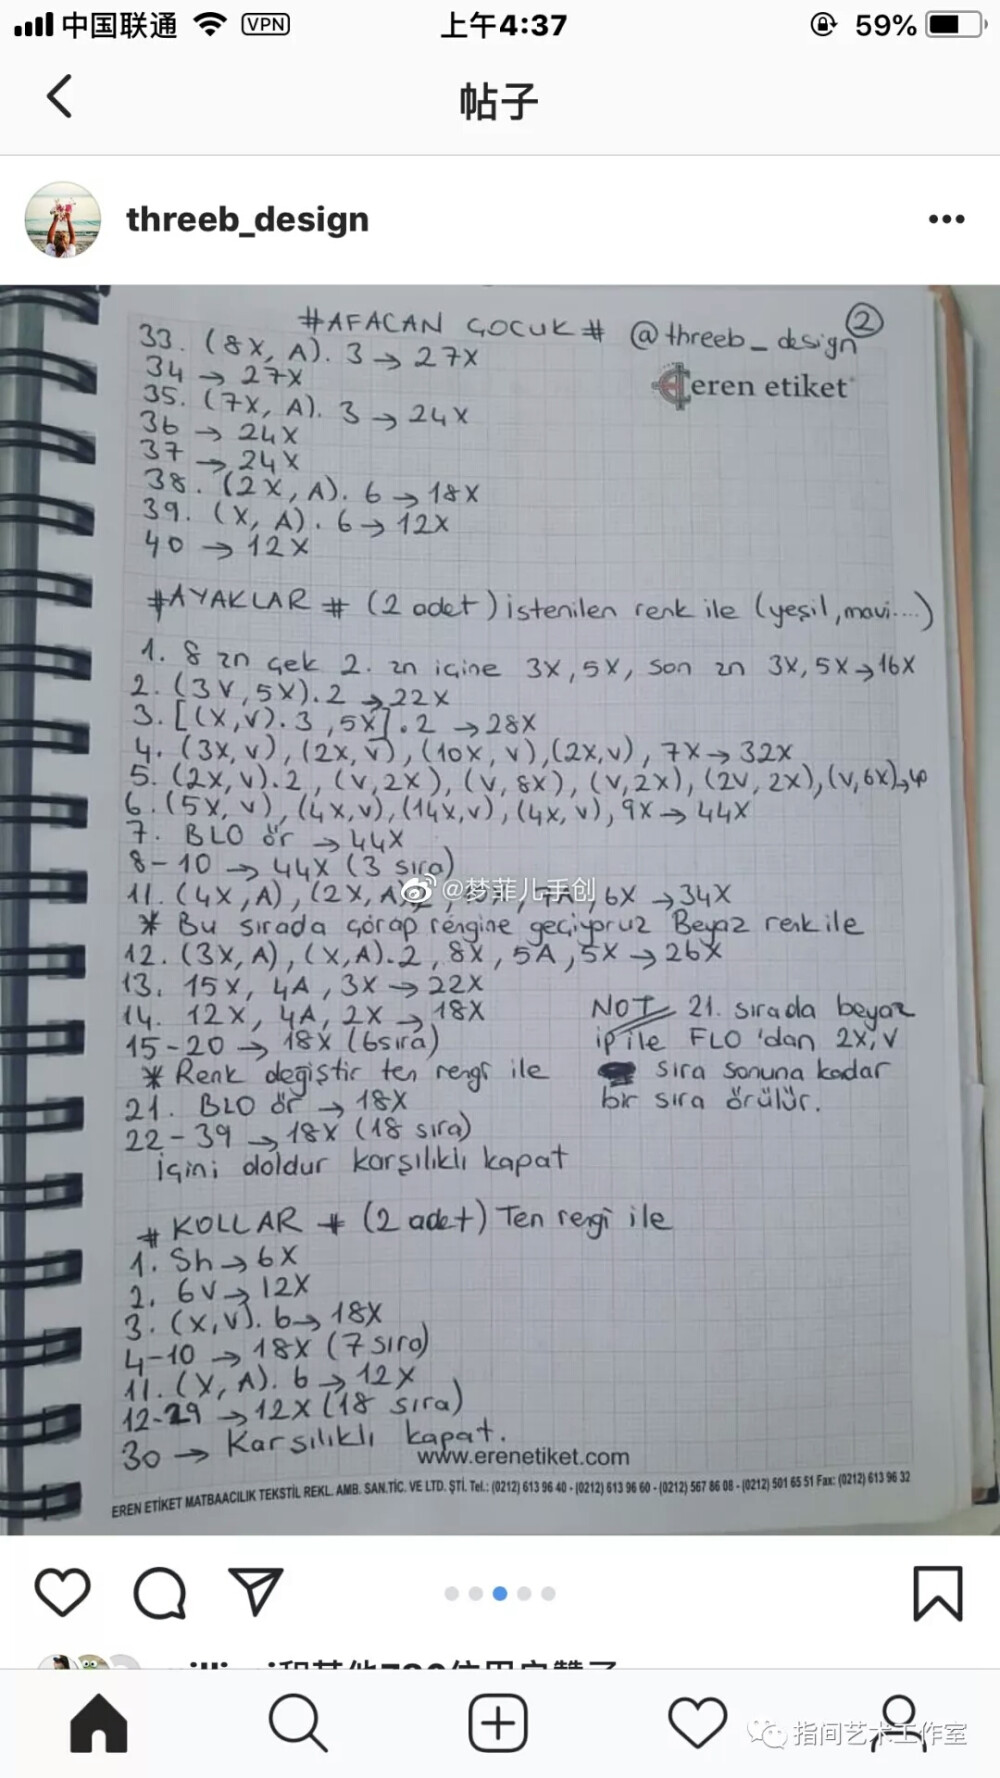 中国联通 VPN 上午4:37 59%
帖子
threeb_design
#AFACAN ÇOCUK# @threeb_design 2
eren etiket
33. (8X, A). 3 → 27X
34 → 27X
35. (7X, A). 3 → 24X
36 → 24X
37 → 24X
38. (2X, A). 6 → 18X
39. (X, A). 6 → 12X
40 → 12X
#AYAKLAR # (2 adet) istenilen renk ile (yeşil, mavi....)
1. 8 zn çek 2. zn içine 3X, 5X, son zn 3X, 5X → 16X
2. (3V, 5X). 2 → 22X
3. [(X, V). 3, 5X]. 2 → 28X
4. (3X, V), (2X, V), (10X, V), (2X, V), 7X → 32X
5. (2X, V). 2, (V, 2X), (V, 8X), (V, 2X), (2V, 2X), (V, 6X) → 40
6. (5X, V), (4X, V), (14X, V), (4X, V), 9X → 44X
7. BLO ör → 44X
8-10 → 44X (3 sıra)
11. (4X, A), (2X, A), 6X → 34X
@梦菲儿手创
* Bu sırada çorap rengine geçiyoruz Beyaz renk ile
12. (3X, A), (X, A). 2, 8X, 5A, 5X → 26X
13. 15X, 4A, 3X → 22X
14. 12X, 4A, 2X → 18X
15-20 → 18X (6sıra)
* Renk değiştir ten rengi ile
21. BLO ör → 18X
22-39 → 18X (18 sıra)
içini doldur karşılıklı kapat
NOT 21. sırada beyaz
ip ile FLO'dan 2X, V
sıra sonuna kadar
bir sıra örülür.
# KOLLAR # (2 adet) Ten rengi ile
1. Sh → 6X
2. 6V → 12X
3. (X, V). 6 → 18X
4-10 → 18X (7 sıra)
11. (X, A). 6 → 12X
12-29 → 12X (18 sıra)
30 → Karşılıklı kapat.
www.erenetiket.com
EREN ETİKET MATBAACILIK TEKSTİL REKL. AMB. SAN.TİC. VE LTD. ŞTİ. Tel.: (0212) 613 96 40 - (0212) 613 96 60 - (0212) 567 86 08 - (0212) 501 65 51 Fax: (0212) 613 96 32
指间艺术工作室